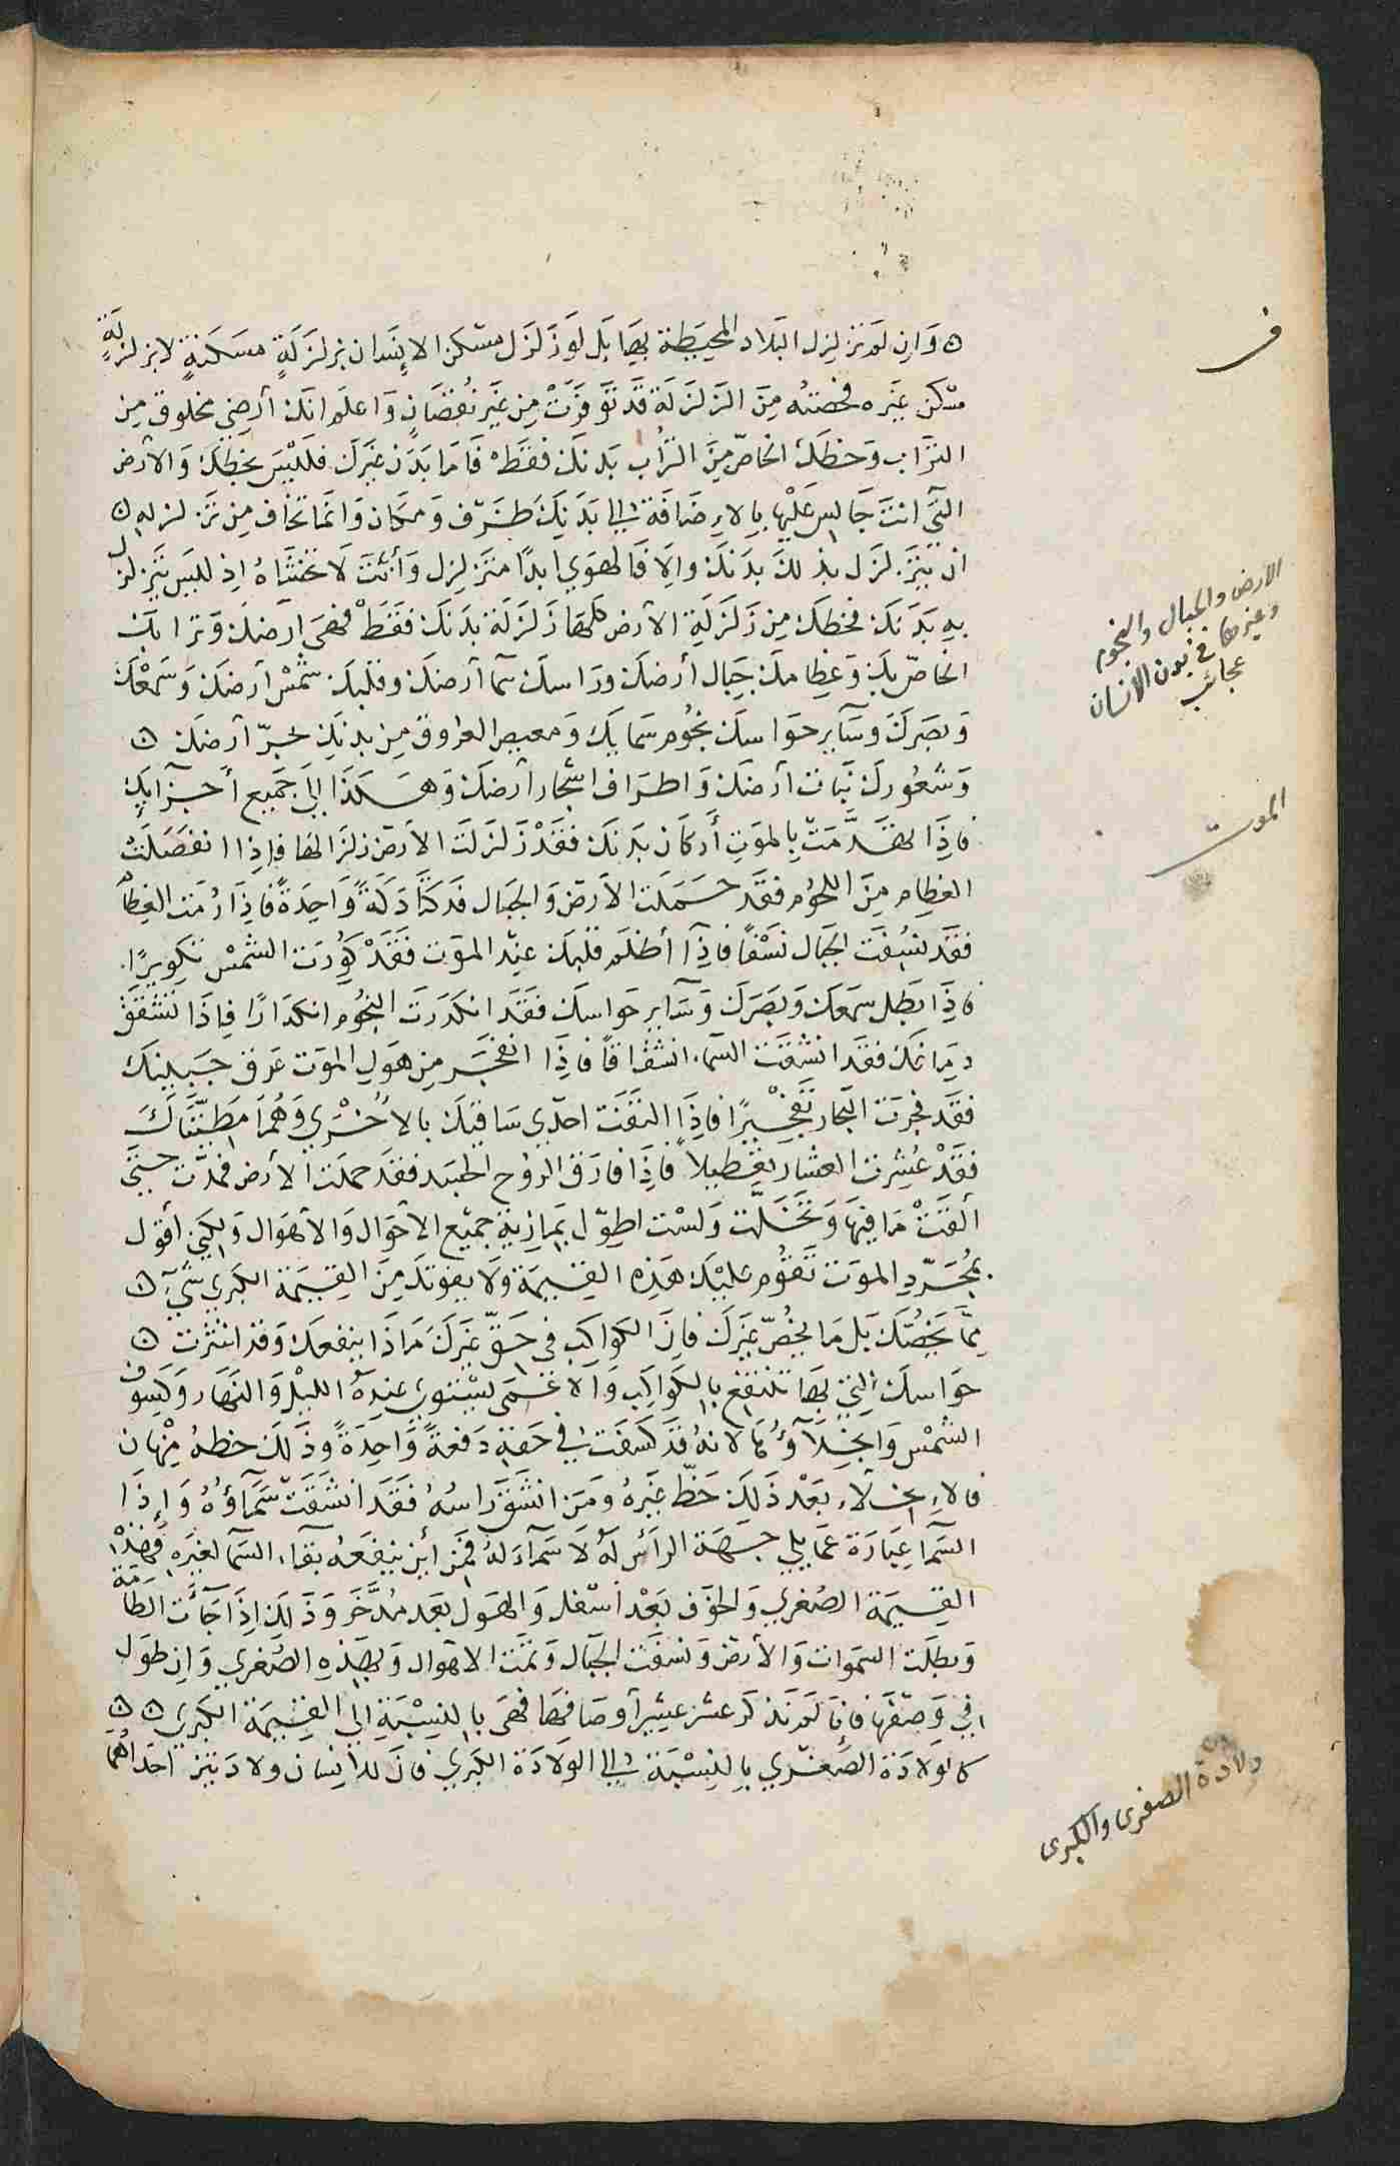 وَاِن لَم تزلزل البَلاد المحيَطة بهَا بَل لَو زَلزَل مسكن الاِنسَان بزلزَلَةٍ مسكنةٍ لا بزلزلةٍ
مسكن غيَره فحصته مِنَ الزلزَلَة قَد توَفرَّتْ مِن غَير نقصَانٍ وَاعلَم انكَ اَرضِي مخلوق مِن
التُراب وَحظكَ الخاصّ مِنَ التُراب بَدنكَ فقَط فَاَمَا بَدَن غيَرَكَ فلَيْسَ بحظكَ وَالاَرض
التَي انتَ جَالس عَليْها بالاِضَافَة اِلى بَدنِكَ ظَرف وَمكَان وَانمَا تخاف مِن تزلزله
ان يتزلزَل بذلكَ بَدَنكَ وَالاِ فَالهوَي ابدًا متزَلزل وَأنتَ لَا تخشَاهُ اِذ ليسَ يتزلزل
بهِ بَدَنكَ فحظكَ مِن زَلزَلَةِ الاَرض كلهَا زَلزَلَة بَدنكَ فقَطْ فهي اَرضكَ وَترابكَ
الخاصّ بكَ وَعظامكَ جبَال أرضكَ ورَاسكَ سمَآ اَرضكَ وقلبكَ شمسْ اَرضكَ وَسَمْعكَ
وَبصَركَ وَسَآيرحَوَاسكَ نجُوم سَمايكَ وَمفيض العرُوق مِن بدنكَ بحرّ اَرضكَ
وَشعُورك نبَات اَرضكَ وَاطرَاف اشجار اَرضكَ وَهَكذَا اِلىَ جَميع أجزَآيكَ
فاِذَا تهَدمَتّ بِالموَتِ أركاَن بَدَنكَ فَقَدْ زَلزَلَتَ الاَرض زلزَالهَا فاِذا انفصَلَتْ
العظام مِنَ اللحُوم فقَد حَملَت الاَرض وَالجبَال فَدكتَا دَكةً وَاحِدَةً فاذَا رُمَت العظاَم
فقَد نسُفتَ الجبَال نسْفاً فاذَآ أظلَم قلبكَ عنِد الموَت فَقَدْ كَوُرَت الشَمْس تكوِيرًا
فاذَا بَطل سمعَكَ وَبصَرَك وَسَآير حَواسكَ فقَد انكدَرَتَ النجُوم انكدَارًا فاذَا انشقَق
دمَاغكَ فقَد انشقَت السَمآء انشقَاقًا فاذَا انفجَر مِن هَولِ الموَت عرَق جَبينكَ
فقَد فجرَت البَحار تفَجْيرًا فاذَا التفَتَ احدَي سَاقيكَ بالاخُرَي وَهُمَا مَطيتَاكَ
فقَدْ عُطِلتَ العشَار تعَطيلاً فاذَا فارَق الروُح الجسَد فقَد حملَت الاَرض فمَدّت حَتىَ
ألقَتْ مَا فيهَا وَتخَلّت وَلسْت اطوّل بمَوازنة جميْع الاَحوَال وَالاَهوَال وَلكِنِ أقوَل
بمُجَرّدِ الموَت تقَوُم عَليْكَ هَذهِ القيمَة وَلَا يفوتكَ مِنَ القيَمَة الكبَري شَيَء
مِمَا يَخُصُكَ بَل مَا يخُصّ غيَرَكَ فاِنَ الكوَاكبَ في حَقّ غيَرَكَ مَاذَا ينفعكَ وَقد انتثرَت
حَواسكَ التيَ بهَا تنتفِع بالكَوَاكبِ وَالاَعْمَى يستَوي عندَهُ الليْل وَالنَهَار وَكسُوف
الشمْس وَانجلَآؤُهَا لانهُ قدَ كسَفَت في حَقهِ دَفعةً وَاحِدَةً وَذلكَ حظهُ مِنهَا ن
فالاِنجلآء بَعْد ذَلِكَ حَظّ غيَرهُ ومَن انشَقَ رَاسهُ فقَد انشقَت سَمَآؤُهُ وَإِذَا
السَمَآ عبَارَة عمَا يلي جهَة الرَأس لَهُ لَا سَمآءَ لهُ فمَن أين ينفعَهُ بقَآء السَمآ لغيَرِهِ فهَذهْ
القيَمَة الصُغري وَالخوَف بَعْد أسفل وَالهَوَل بَعَد مدّخَر وَذَلكَ اِذَا جَآءَت الطَامَة
وَبطَلَت السَموَات وَالاَرض وَنسفَت الجبَال وَتمَتَ الاَهوَال وَبهذهِ الصُغري وَان طوَل
افي وَصفهَا فانِا لَم نَذكَر عشر عشِير اَوصَافهَا فهَي بالنِسْبَة اِلي القيَمَة الكبَري
كالوِلادَة الصَغرَي بِالنِسْبَة اِلى الوِلادَة الكبَري فانَ للاِنسَان ولادَتين احدَاهُمَا
ف
الارض والجبال والنجوم
وغيرها في بدن الانسان
عجائب
الموت
ولادة الصغرى والكبرى